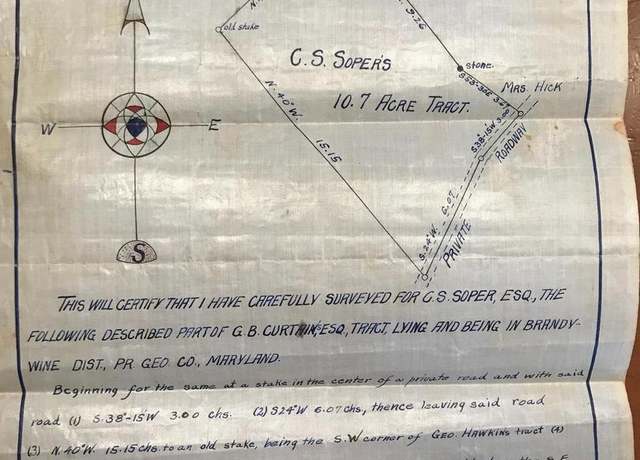 N.
S. 26
old stake
C. S. SOPER'S
stone.
S53°-30E 3.27
MRS. HICK
10.7 ACRE TRACT.
N. 40°W. 15.15
S38°-15'W 3.00
W E
ROADWAY
S. 24°W. 6.07
PRIVATE
S
THIS WILL CERTIFY THAT I HAVE CAREFULLY SURVEYED FOR C.S. SOPER, ESQ., THE
FOLLOWING DESCRIBED PART OF G. B. CURTAIN,'S ESQ., TRACT, LYING AND BEING IN BRANDY-
WINE DIST., PR. GEO. CO., MARYLAND.
Beginning for the same at a stake in the center of a private road and with said
road (1) S. 38°-15'W 3.00 chs. (2) S24°W 6.07 chs., thence leaving said road
(3) N. 40°W. 15.15 chs. to an old stake, being the S.W corner of GEO. HAWKINS tract (4)
S.E.